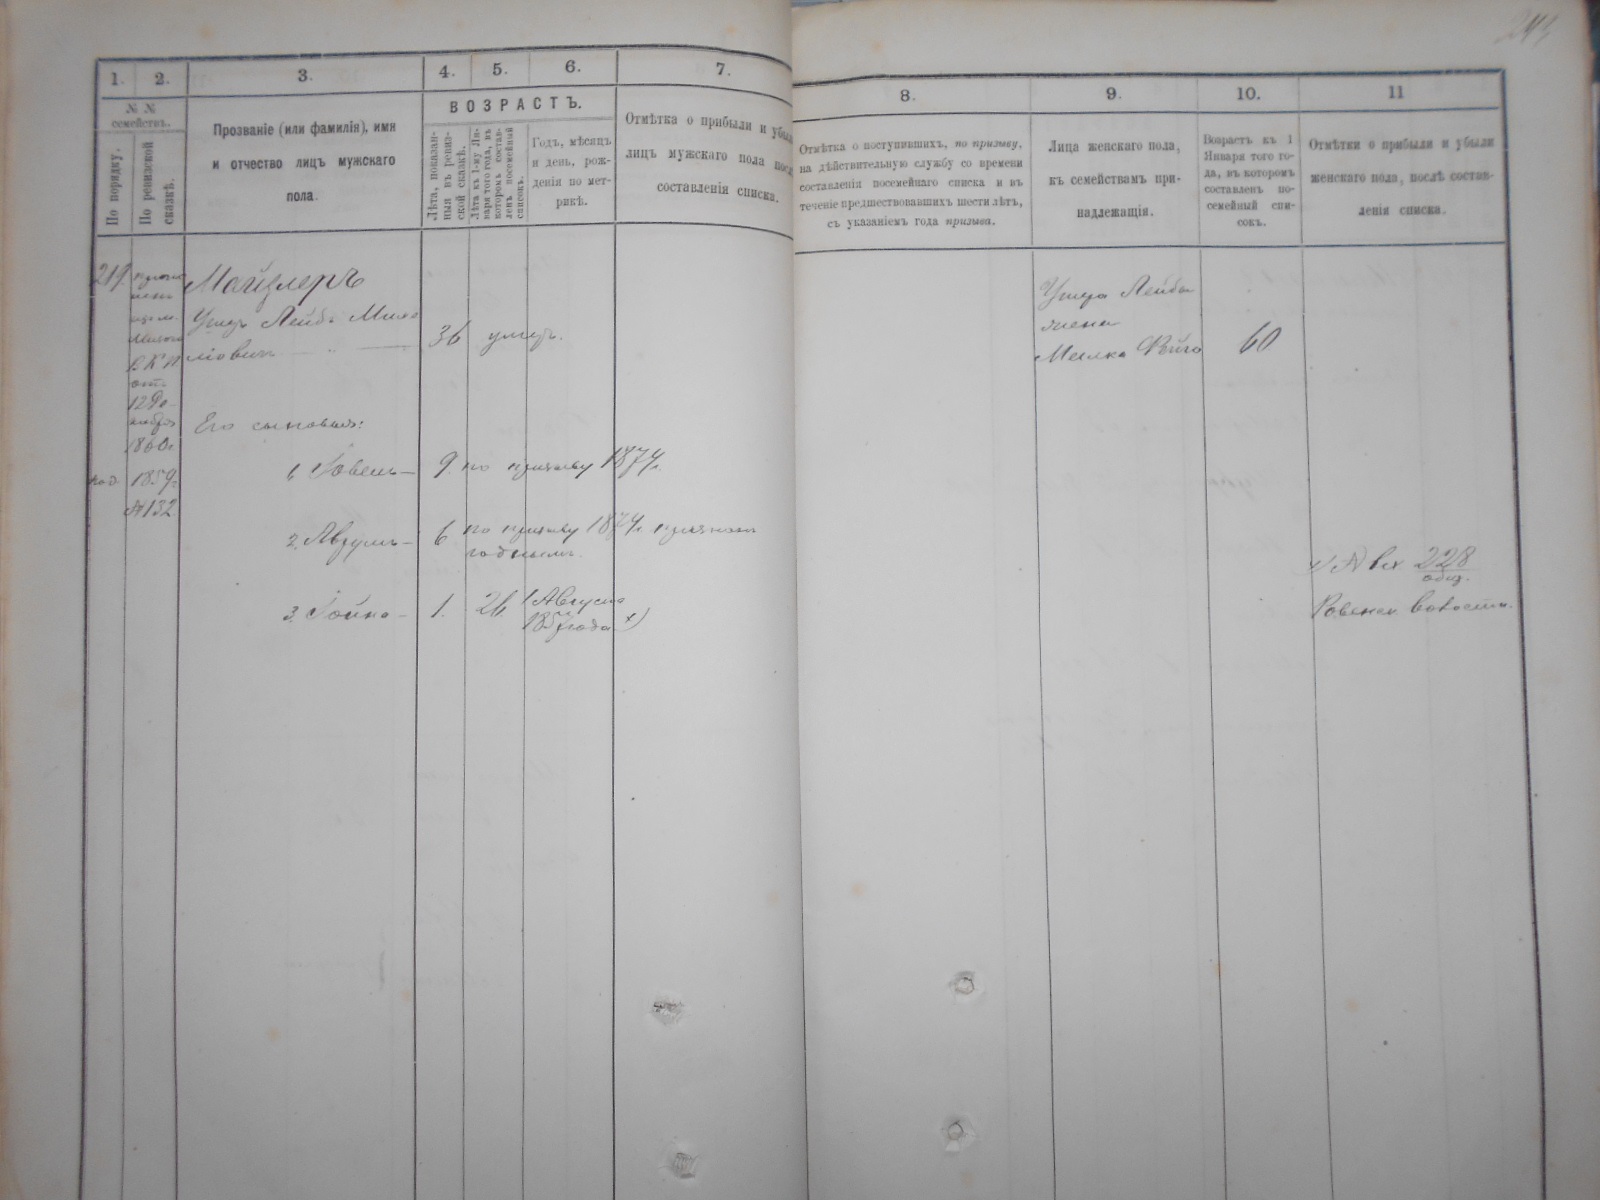 1.
2.
3.
4.
5.
6.
7.
8.
9.
10.
11
№ №
семействъ.
По порядку.
По ревизской
сказкѣ.
Прозваніе (или фамилія), имя
и отчество лицъ мужскаго
пола.
ВОЗРАСТЪ.
Лѣта, показан-
ныя въ ревиз-
ской сказкѣ.
Лѣта къ 1-му Ян-
варя того года, въ
которомъ состав-
ленъ посемейный
списокъ.
Годъ, мѣсяцъ
и день, рож-
денія по мет-
рикѣ.
Отмѣтка о прибыли и убыли
лицъ мужскаго пола послѣ
составленія списка.
Отмѣтка о поступившихъ, по призыву,
на дѣйствительную службу со времени
составленія посемейнаго списка и въ
теченіе предшествовавшихъ шести лѣтъ,
съ указаніемъ года призыва.
Лица женскаго пола,
къ семействамъ при-
надлежащія.
Возрастъ къ 1
Января того го-
да, въ которомъ
составленъ по-
семейный спи-
сокъ.
Отмѣтки о прибыли и убыли
женскаго пола, послѣ состав-
ленія списка.
219
Майзлеръ
Лейбъ
36 умер.
К П
от
12 Де-
кабря
1860г
1859г
№132
Его сыновья:
1, 9. по призыву 1874г.
2. Аврумъ 6 по призыву 1874г. признанъ
годнымъ.
3. Іойна 1. 26. 1 Августа
1857 года х)
Лейбы
жена
Фейга 60
228
обор.
Ровенск. волости.